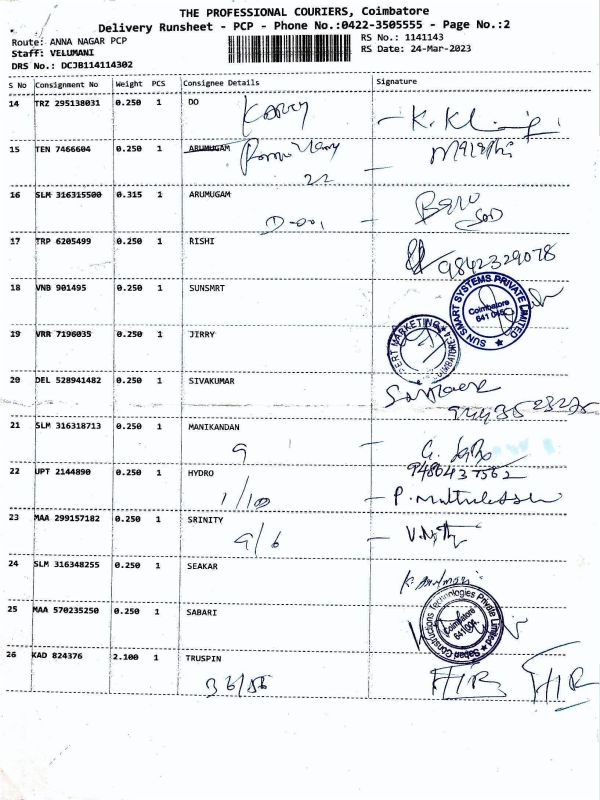 THE PROFESSIONAL COURIERS, Coimbatore
Delivery Runsheet - PCP - Phone No.:0422-3505555 - Page No.:2
Route: ANNA NAGAR PCP
RS No.: 1141143
Staff: VELUMANI
RS Date: 24-Mar-2023
DRS No.: DCJB114114302
S No Consignment No Weight PCS Consignee Details Signature
14 TRZ 295138031 0.250 1 DO
15 TEN 7466604 0.250 1 ARUMUGAM
22
16 SLM 316315500 0.315 1 ARUMUGAM
D-001
17 TRP 6205499 0.250 1 RISHI
9842329078
18 VNB 901495 0.250 1 SUNSMRT
SUN SMART SYSTEMS PRIVATE LIMITED
Coimbatore
641 045
19 VRR 7196035 0.250 1 JIRRY
20 DEL 528941482 0.250 1 SIVAKUMAR
21 SLM 316318713 0.250 1 MANIKANDAN
9
22 UPT 2144890 0.250 1 HYDRO
23 MAA 299157182 0.250 1 SRINITY
9/6
24 SLM 316348255 0.250 1 SEAKAR
25 MAA 570235250 0.250 1 SABARI
Coimbatore
26 KAD 824376 2.100 1 TRUSPIN